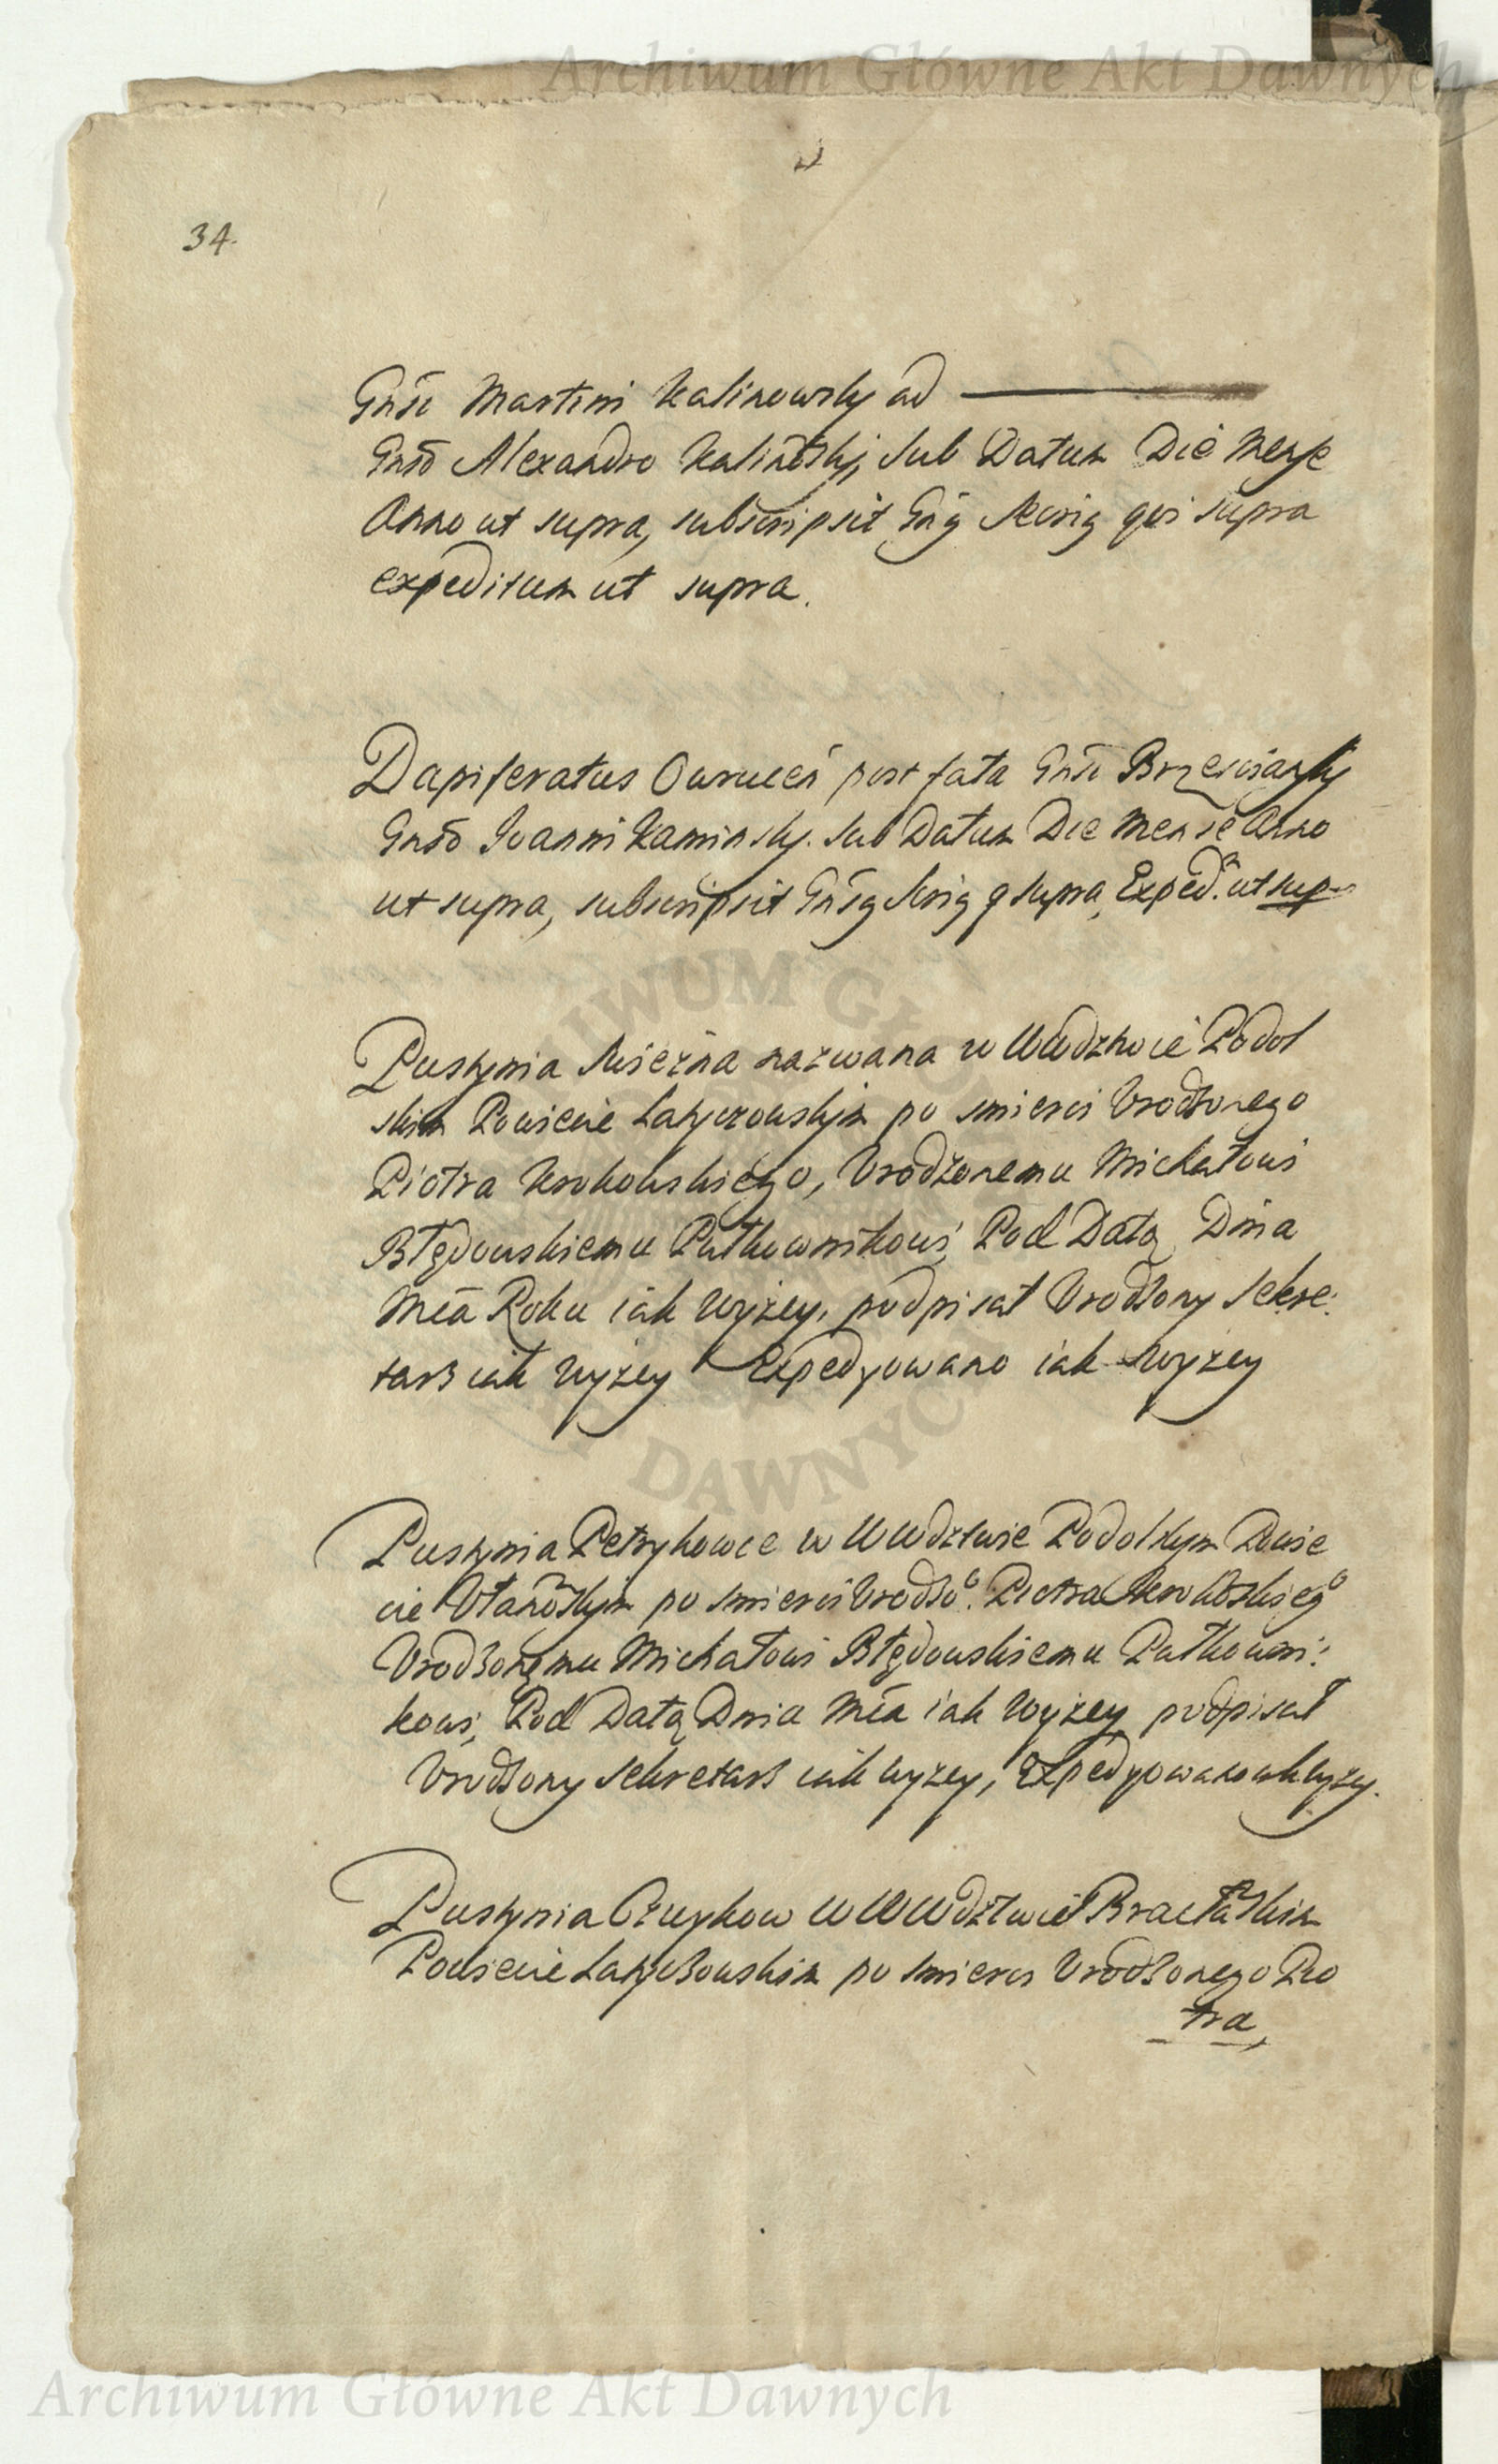 Archiwum Główne Akt Dawnych
34.
Gnsi Martini Kalinowsky ad
Gnso Alexandro Kalinõsky, sub Datum Die Mense
Anno ut supra, subscripsit Gns Secris qui supra
expeditum ut supra.
Dapiferatus Ovrucen post fata Gnsi Brzesciansky
Gnso Joanni Kaminsky. sub Datum Die Mense Anno
ut supra, subscripsit Gnsq Secris q supra, Exped. ut sup
Pustynia nazwana w WWdztwie Podol
skim Powiecie Latyczowskim po smierci Vrodzonego
Piotra Krokowskiego, Vrodzonemu Michałowi
Błędowskiemu Pułkownikowi, Pod Datą Dnia
Mca Roku iak wyżey, podpisał Vrodzony Sekre:
tarz iak wyżey Expedyowano iak wyżey
Pustynia Petrykowce w WWdztwie Podolskym Powie
cie po smierci Vrodzo. Piotra Krokõskiego
Vrodzonemu Michałowi Błędowskiemu Pułkowni:
kowi, Pod Datą Dnia Mca iak wyżey podpisał
Vrodzony Sekretarz iak wyżey, Expedyowano iak wyży.
Pustynia Czuykow w WWdztwie Bracłaskim
Powiecie Latyczowskim po smierci Vrodzonego Pio
tra,
ARCHIWUM GŁÓWNE AKT DAWNYCH
Archiwum Główne Akt Dawnych